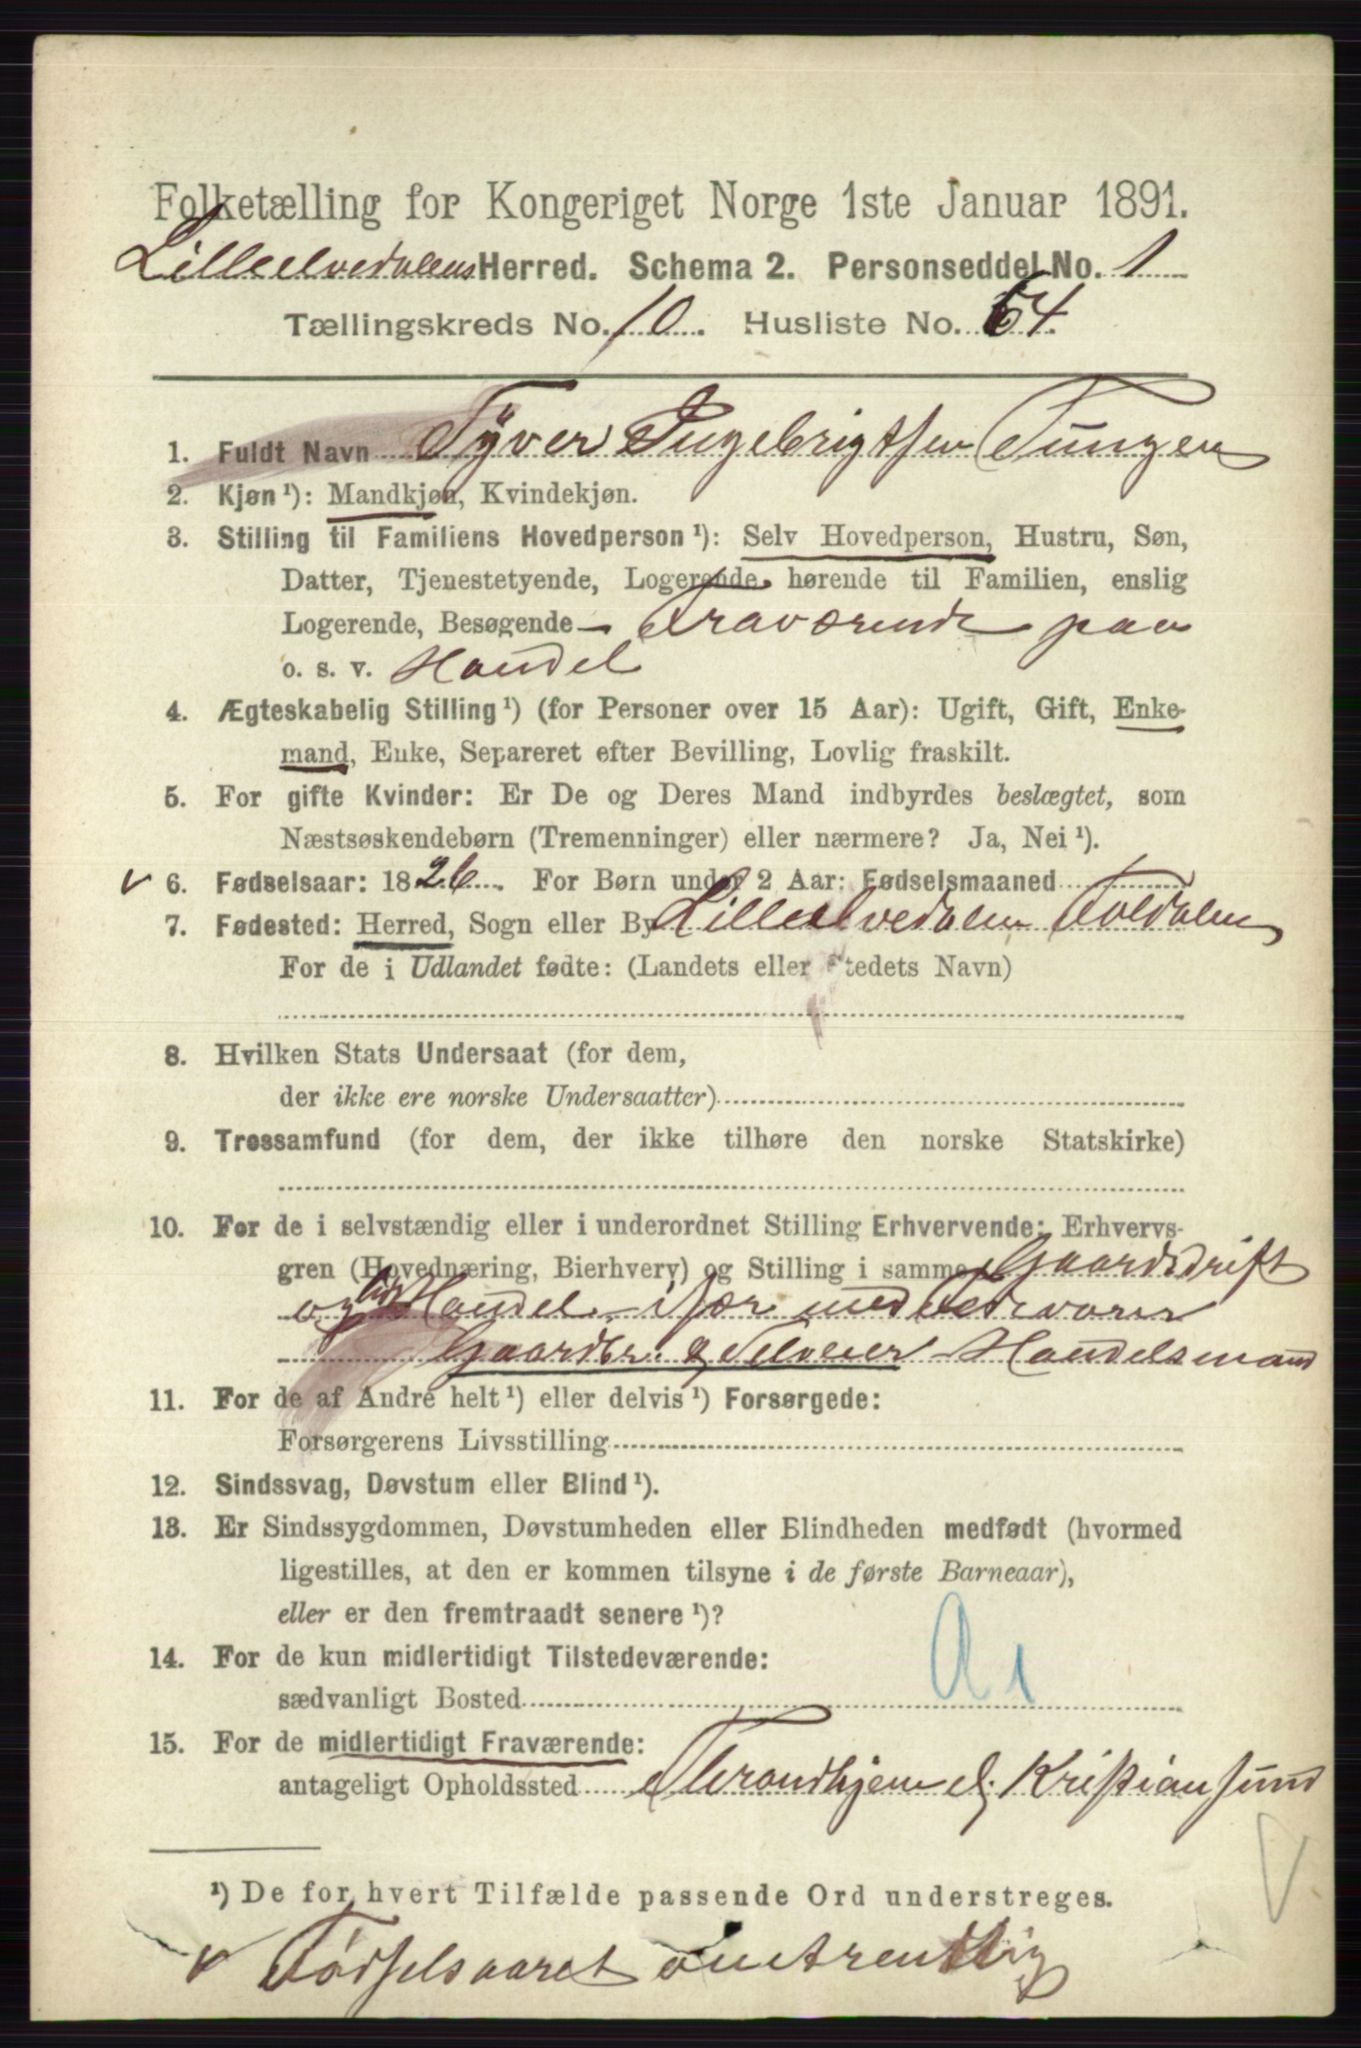 Folketælling for Kongeriget Norge 1ste Januar 1891.
Lilleelvedalens Herred. Schema 2. Personseddel No. 1
Tællingskreds No. 10. Husliste No. 64.
1. Fuldt Navn Tÿver Ingebrigtsen Tungen
2. Kjøn¹): Mandkjøn, Kvindekjøn.
3. Stilling til Familiens Hovedperson¹): Selv Hovedperson, Hustru, Søn,
Datter, Tjenestetyende, Logerende hørende til Familien, enslig
Logerende, Besøgende – Fraværende paa
o. s. v. Handel
4. Ægteskabelig Stilling¹) (for Personer over 15 Aar): Ugift, Gift, Enke-
mand, Enke, Separeret efter Bevilling, Lovlig fraskilt.
5. For gifte Kvinder: Er De og Deres Mand indbyrdes beslægtet, som
Næstsøskendebørn (Tremenninger) eller nærmere? Ja, Nei¹).
v 6. Fødselsaar: 1826. For Børn under 2 Aar: Fødselsmaaned
7. Fødested: Herred, Sogn eller By Lilleelvedalen Foldalen
For de i Udlandet fødte: (Landets eller Stedets Navn)
8. Hvilken Stats Undersaat (for dem,
der ikke ere norske Undersaatter)
9. Trossamfund (for dem, der ikke tilhøre den norske Statskirke)
10. For de i selvstændig eller i underordnet Stilling Erhvervende: Erhvervs-
gren (Hovednæring, Bierhverv) og Stilling i samme Gaardsdrift
og Handel især med
Gaardbr. & Selveier Handelsmand
11. For de af Andre helt¹) eller delvis¹) Forsørgede:
Forsørgerens Livsstilling
12. Sindssvag, Døvstum eller Blind¹).
13. Er Sindssygdommen, Døvstumheden eller Blindheden medfødt (hvormed
ligestilles, at den er kommen tilsyne i de første Barneaar),
eller er den fremtraadt senere¹)?
14. For de kun midlertidigt Tilstedeværende:
sædvanligt Bosted
15. For de midlertidigt Fraværende:
antageligt Opholdssted Throndhjem el. Kristiansund
¹) De for hvert Tilfælde passende Ord understreges.
v Fødselsaaret omtrentlig